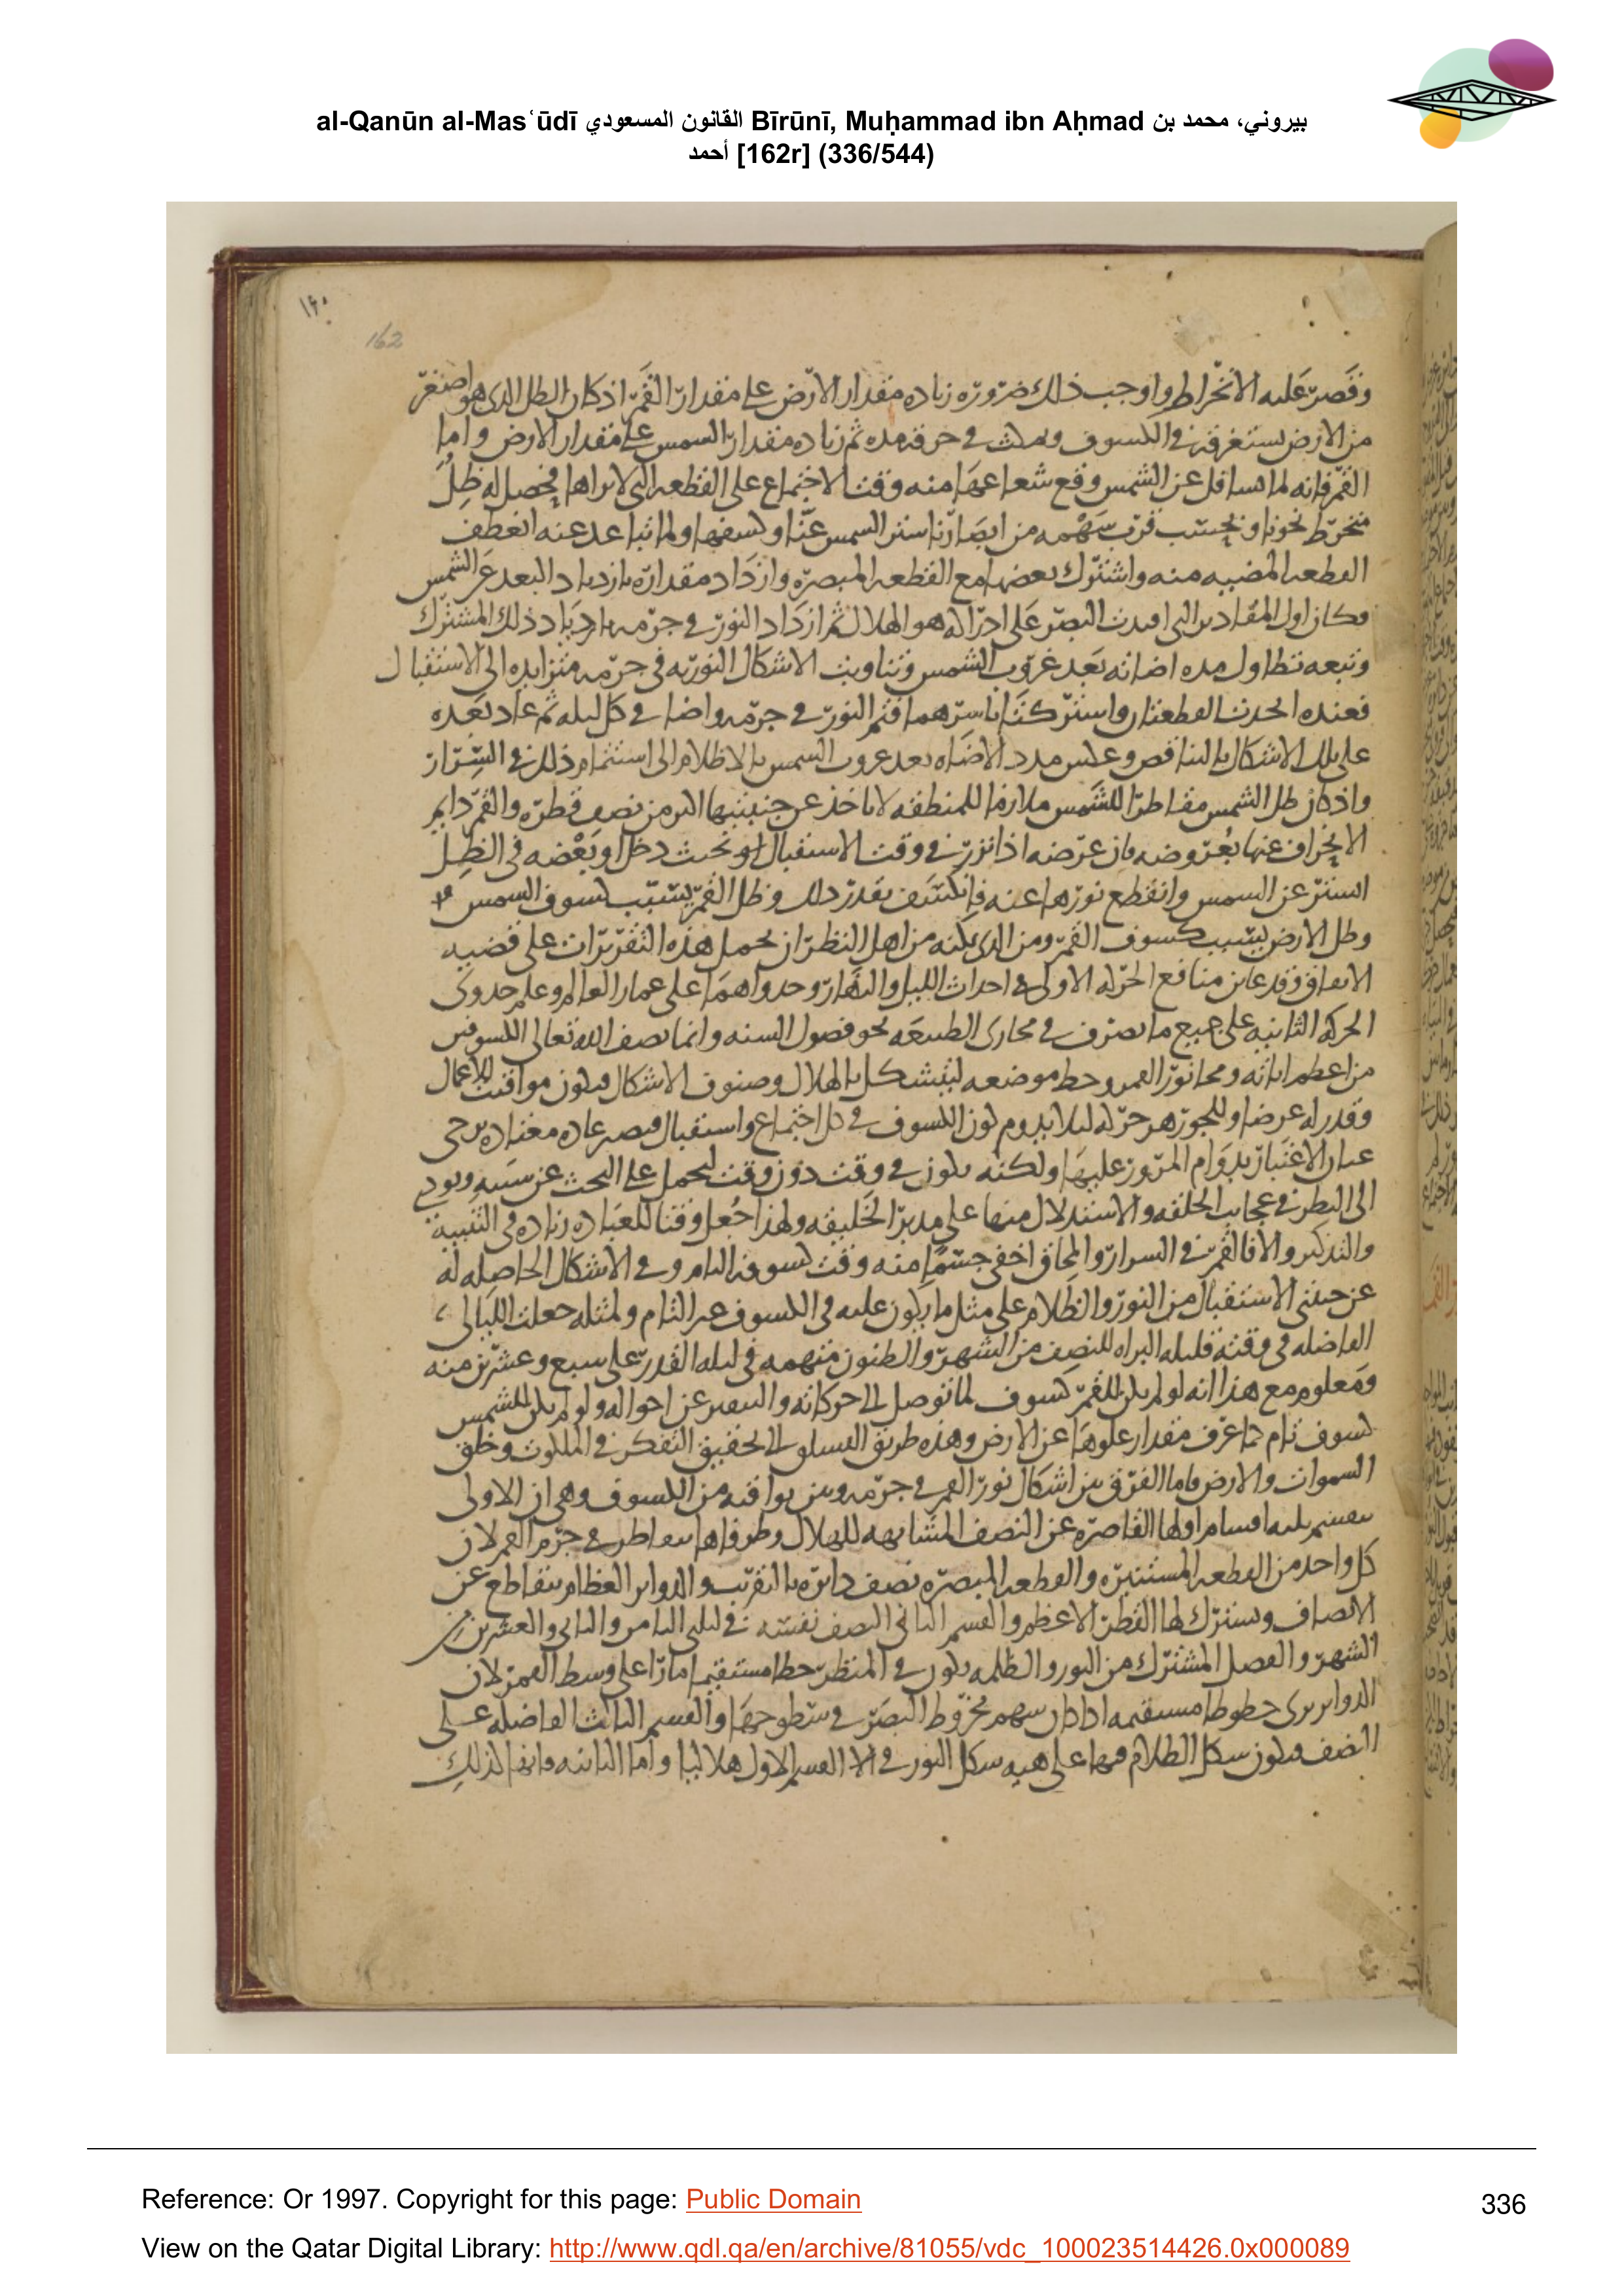 al-Qanūn al-Masʿūdī القانون المسعودي Bīrūnī, Muḥammad ibn Aḥmad بيروني، محمد بن
أحمد [162r] (336/544)
١٦٠
162
وقصر عليه الانخراط واوجب ذلك ضرورة زياده مقدار الارض على مقدار القمر اذ كان الظل الذى هو اصغر
من الارض يستغرقه في الكسوف ويمكث في مده ثم زياده مقدار الشمس على مقدار الارض واما
القمر فانه لما عن الشمس وقع شعاعها منه وقت الاجتماع على القطعه التى لا نراها فحصل له ظل
منخرط نحونا وبحسب قرب سهمه من ابصارنا ستر الشمس عنا وكسفها ولما تباعد عنه انعطف
القطعه المضيه منه واشترك بعضها مع القطعه المبصره وازداد مقداره بازدياد البعد عن الشمس
وكان اول المقادير التى البصر على ادراكه هو الهلال ثم ازداد النور في جرمه بازدياد ذلك المشترك
وتبعه تطاول مده اضاته بعد غروب الشمس وتناوبت الاشكال النوريه في جرمه متزايده الى الاستقبال
فعنده اتحدت القطعتان واشتركتا باسرهما فتم النور في جرمه واضا في كل ليله ثم عاد بعده
على تلك الاشكال بالتناقص وعكس مدد الاضاه بعد غروب الشمس بالاظلام الى استتمام ذلك في السرار
واذ كان ظل الشمس مقاطرا للشمس ملازما للمنطقه لا ياخذ عن جنبيتها اكثر من نصف قطره والقمر دايم
الانحراف عنها بعروضه فان عرضه اذا نزر في وقت الاستقبال او بحيث دخل او بعضه في الظل
استتر عن الشمس وانقطع نورها عنه فانكسف بقدر ذلك وظل القمر يسبب كسوف الشمس
وظل الارض يسبب كسوف القمر ومن الذى يمكنه من اهل النظر ان يحمل هذه التقريرات على قضيه
الاتفاق وقد عاين منافع الحركه الاولى في احداث الليل والنهار وجدواهما على عمار العالم وعلم جدوى
الحركه الثانيه على جميع ما تصرف في مجارى الطبيعه نحو فصول السنه وانما يصف الله تعالى الكسوفين
من اعظم اياته ومحا نور القمر وحط موضعه ليتشكل بالهلال وصنوف الاشكال فيكون مواقيت للاعمال
وقدر له عرضا وللجوزهر حركه ليلا يدوم كون الكسوف في كل اجتماع واستقبال فيصير عاده معتاده يرجى
عنان الاعتبار بدوام المرور عليها ولكنه يكون في وقت دون وقت ليحمل على البحث عن سببه ويودى
الى النظر في عجايب الخلقه والاستدلال منها على مدبر الخليقه ولهذا جعل وقتا للعباده زياده في التنبيه
والتذكير والا فالقمر في السرار والمحاق اخفى جسما منه وقت كسوفه التام وفي الاشكال الحاصله له
عن جنبتى الاستقبال من النور والظلام على مثل ما يكون عليه في الكسوف غير التام ولمثله جعلت الليالى
الفاضله في وقته كليله البراه للنصف من الشهر والظنون متهمه في ليله القدر على سبع وعشرين منه
ومعلوم مع هذا انه لو لم يكن للقمر كسوف لما توصل الى حركاته والتعبير عن احواله ولو لم يكن للشمس
كسوف تام لما عرف مقدار علوها عن الارض وهذه طريق الى تحقيق التفكر في الملكوت وخلق
السموات والارض فاما الفرق بين اشكال نور القمر في جرمه وبين بواقيه من الكسوف وهى ان الاولى
تنقسم ثلثه اقسام اولها القاصره عن النصف المشابهه للهلال وطرفاها يتقاطران في جرم القمر لان
كل واحد من القطعه المستنيره والقطعه المبصره نصف دايره بالتقريب والدواير العظام تتقاطع عن
الانصاف وتشترك لها القطر الاعظم والقسم الثانى النصف نفسه في ليلتى الثامن والثانى والعشرين من
الشهر والفصل المشترك من النور والظلمه يكون في المنظر خطا مستقيما مارا على وسط القمر لان
الدواير ترى خطوطا مستقيمه اذا كان سهم مخروط البصر في سطوحها والقسم الثالث الفاضله على
النصف فيكون شكل الظلام فيها على هيه شكل النور في القسم الاول هلاليا واما الثانيه فانها كذلك
Reference: Or 1997. Copyright for this page: Public Domain
View on the Qatar Digital Library: http://www.qdl.qa/en/archive/81055/vdc_100023514426.0x000089
336